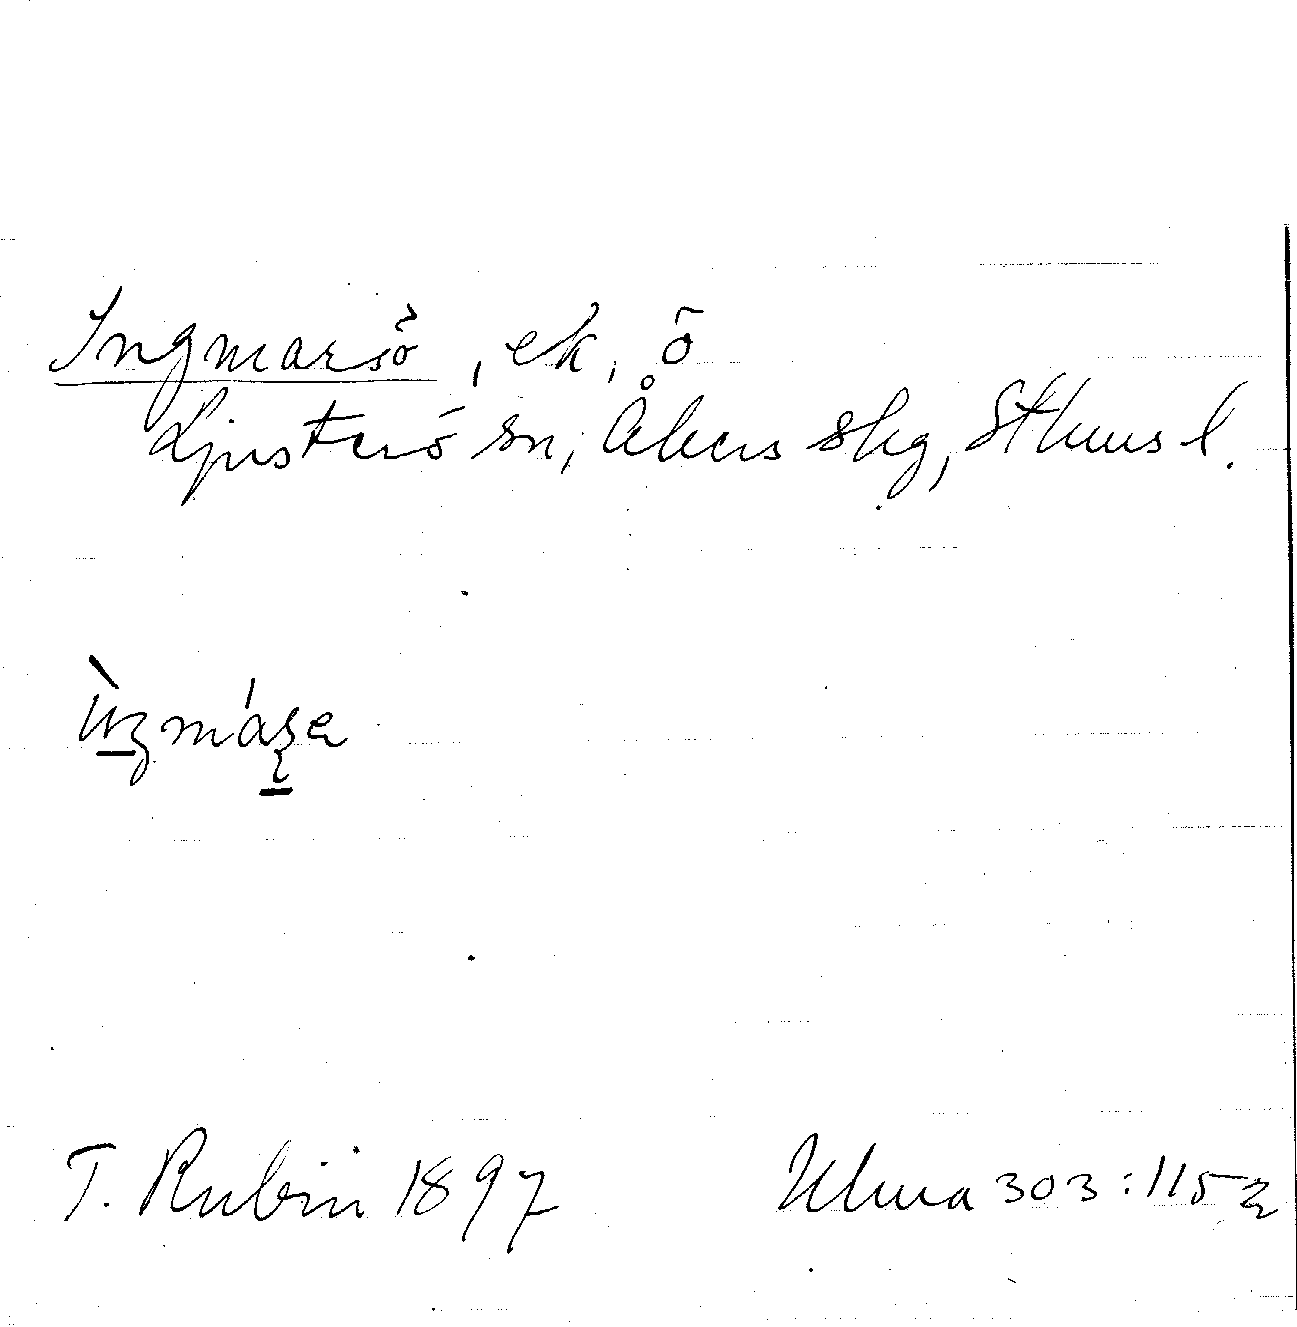 Ingmarsö, ek, ö
Ljusterö sn, Åkers skg, Sthms l.
T. Rubin 1897 Ulma 303:115 a